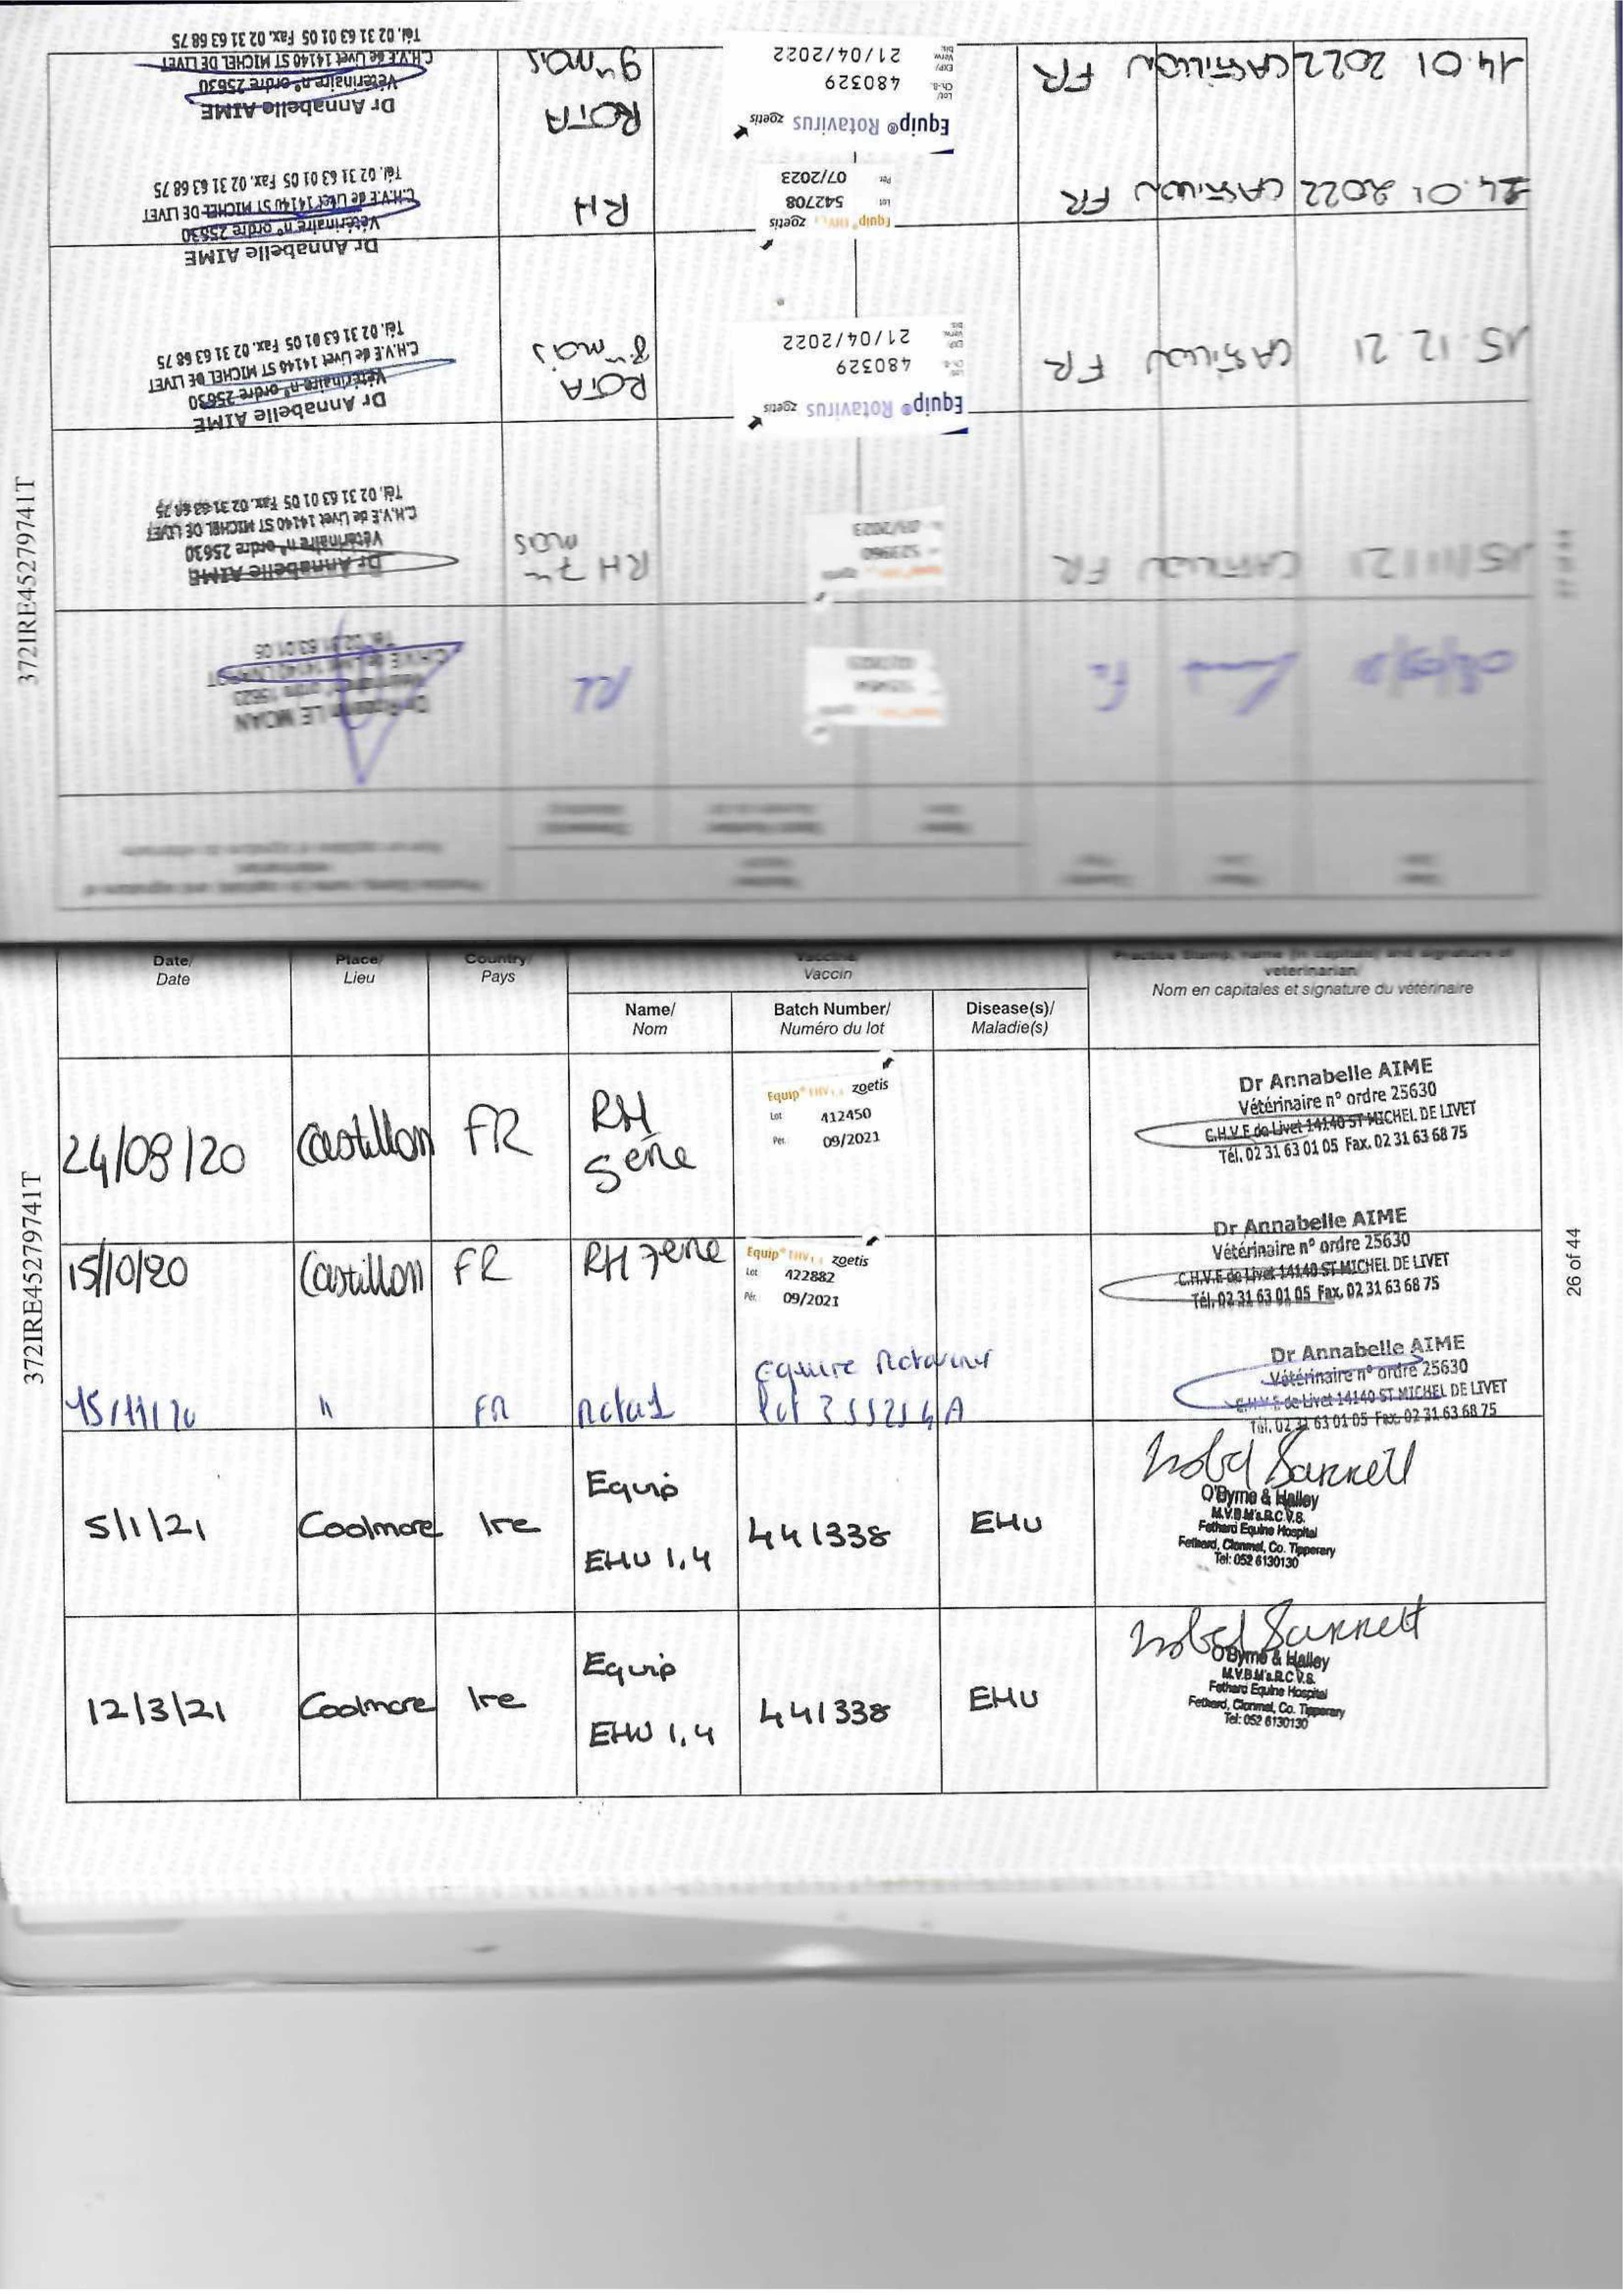 372IRE45279741T
26 of 44
Date/ Place/ Country/ Vaccine/ Practice Stamp, name (in capitals) and signature of
Date Lieu Pays Vaccin veterinarian/
Nom en capitales et signature du vétérinaire
Name/ Batch Number/ Disease(s)/
Nom Numéro du lot Maladie(s)
24/09/20 Castillon FR RH 5ème
Equip® EHV1,4 zoetis
Lot 412450
Per. 09/2021
Dr Annabelle AIME
Vétérinaire n° ordre 25630
C.H.V.E de Livet 14140 ST MICHEL DE LIVET
Tél. 02 31 63 01 05 Fax. 02 31 63 68 75
15/10/20 Castillon FR RH 7ème
Equip® EHV1,4 zoetis
Lot 422882
Pér. 09/2021
Dr Annabelle AIME
Vétérinaire n° ordre 25630
C.H.V.E de Livet 14140 ST MICHEL DE LIVET
Tél. 02 31 63 01 05 Fax. 02 31 63 68 75
15/11/20 " FR Rota1
Dr Annabelle AIME
Vétérinaire n° ordre 25630
C.H.V.E de Livet 14140 ST MICHEL DE LIVET
Tél. 02 31 63 01 05 Fax. 02 31 63 68 75
5/1/21 Coolmore Ire Equip EHV 1,4 441338 EHV
O'Byrne & Halley
M.V.B.M's.R.C.V.S.
Fethard Equine Hospital
Fethard, Clonmel, Co. Tipperary
Tel: 052 6130130
12/3/21 Coolmore Ire Equip EHV 1,4 441338 EHV
O'Byrne & Halley
M.V.B.M's.R.C.V.S.
Fethard Equine Hospital
Fethard, Clonmel, Co. Tipperary
Tel: 052 6130130
372IRE45279741T
Fr RH
LE MOAN
15/11/21 CASTILLON FR
523960
RH 7e mois
Dr Annabelle AIME
Vétérinaire n° ordre 25630
C.H.V.E de Livet 14140 ST MICHEL DE LIVET
Tél. 02 31 63 01 05 Fax. 02 31 63 68 75
15.12.21 CASTILLON FR
Equip® Rotavirus zoetis
480329
21/04/2022
ROTA 8e mois
Dr Annabelle AIME
Vétérinaire n° ordre 25630
C.H.V.E de Livet 14140 ST MICHEL DE LIVET
Tél. 02 31 63 01 05 Fax. 02 31 63 68 75
14.01 2022 CASTILLON FR
Equip® EHV1,4 zoetis
Lot 542708
Per. 07/2023
RH
Dr Annabelle AIME
Vétérinaire n° ordre 25630
C.H.V.E de Livet 14140 ST MICHEL DE LIVET
Tél. 02 31 63 01 05 Fax. 02 31 63 68 75
14.01 2022 CASTILLON FR
Equip® Rotavirus zoetis
480329
21/04/2022
ROTA 9e mois
Dr Annabelle AIME
Vétérinaire n° ordre 25630
C.H.V.E de Livet 14140 ST MICHEL DE LIVET
Tél. 02 31 63 01 05 Fax. 02 31 63 68 75